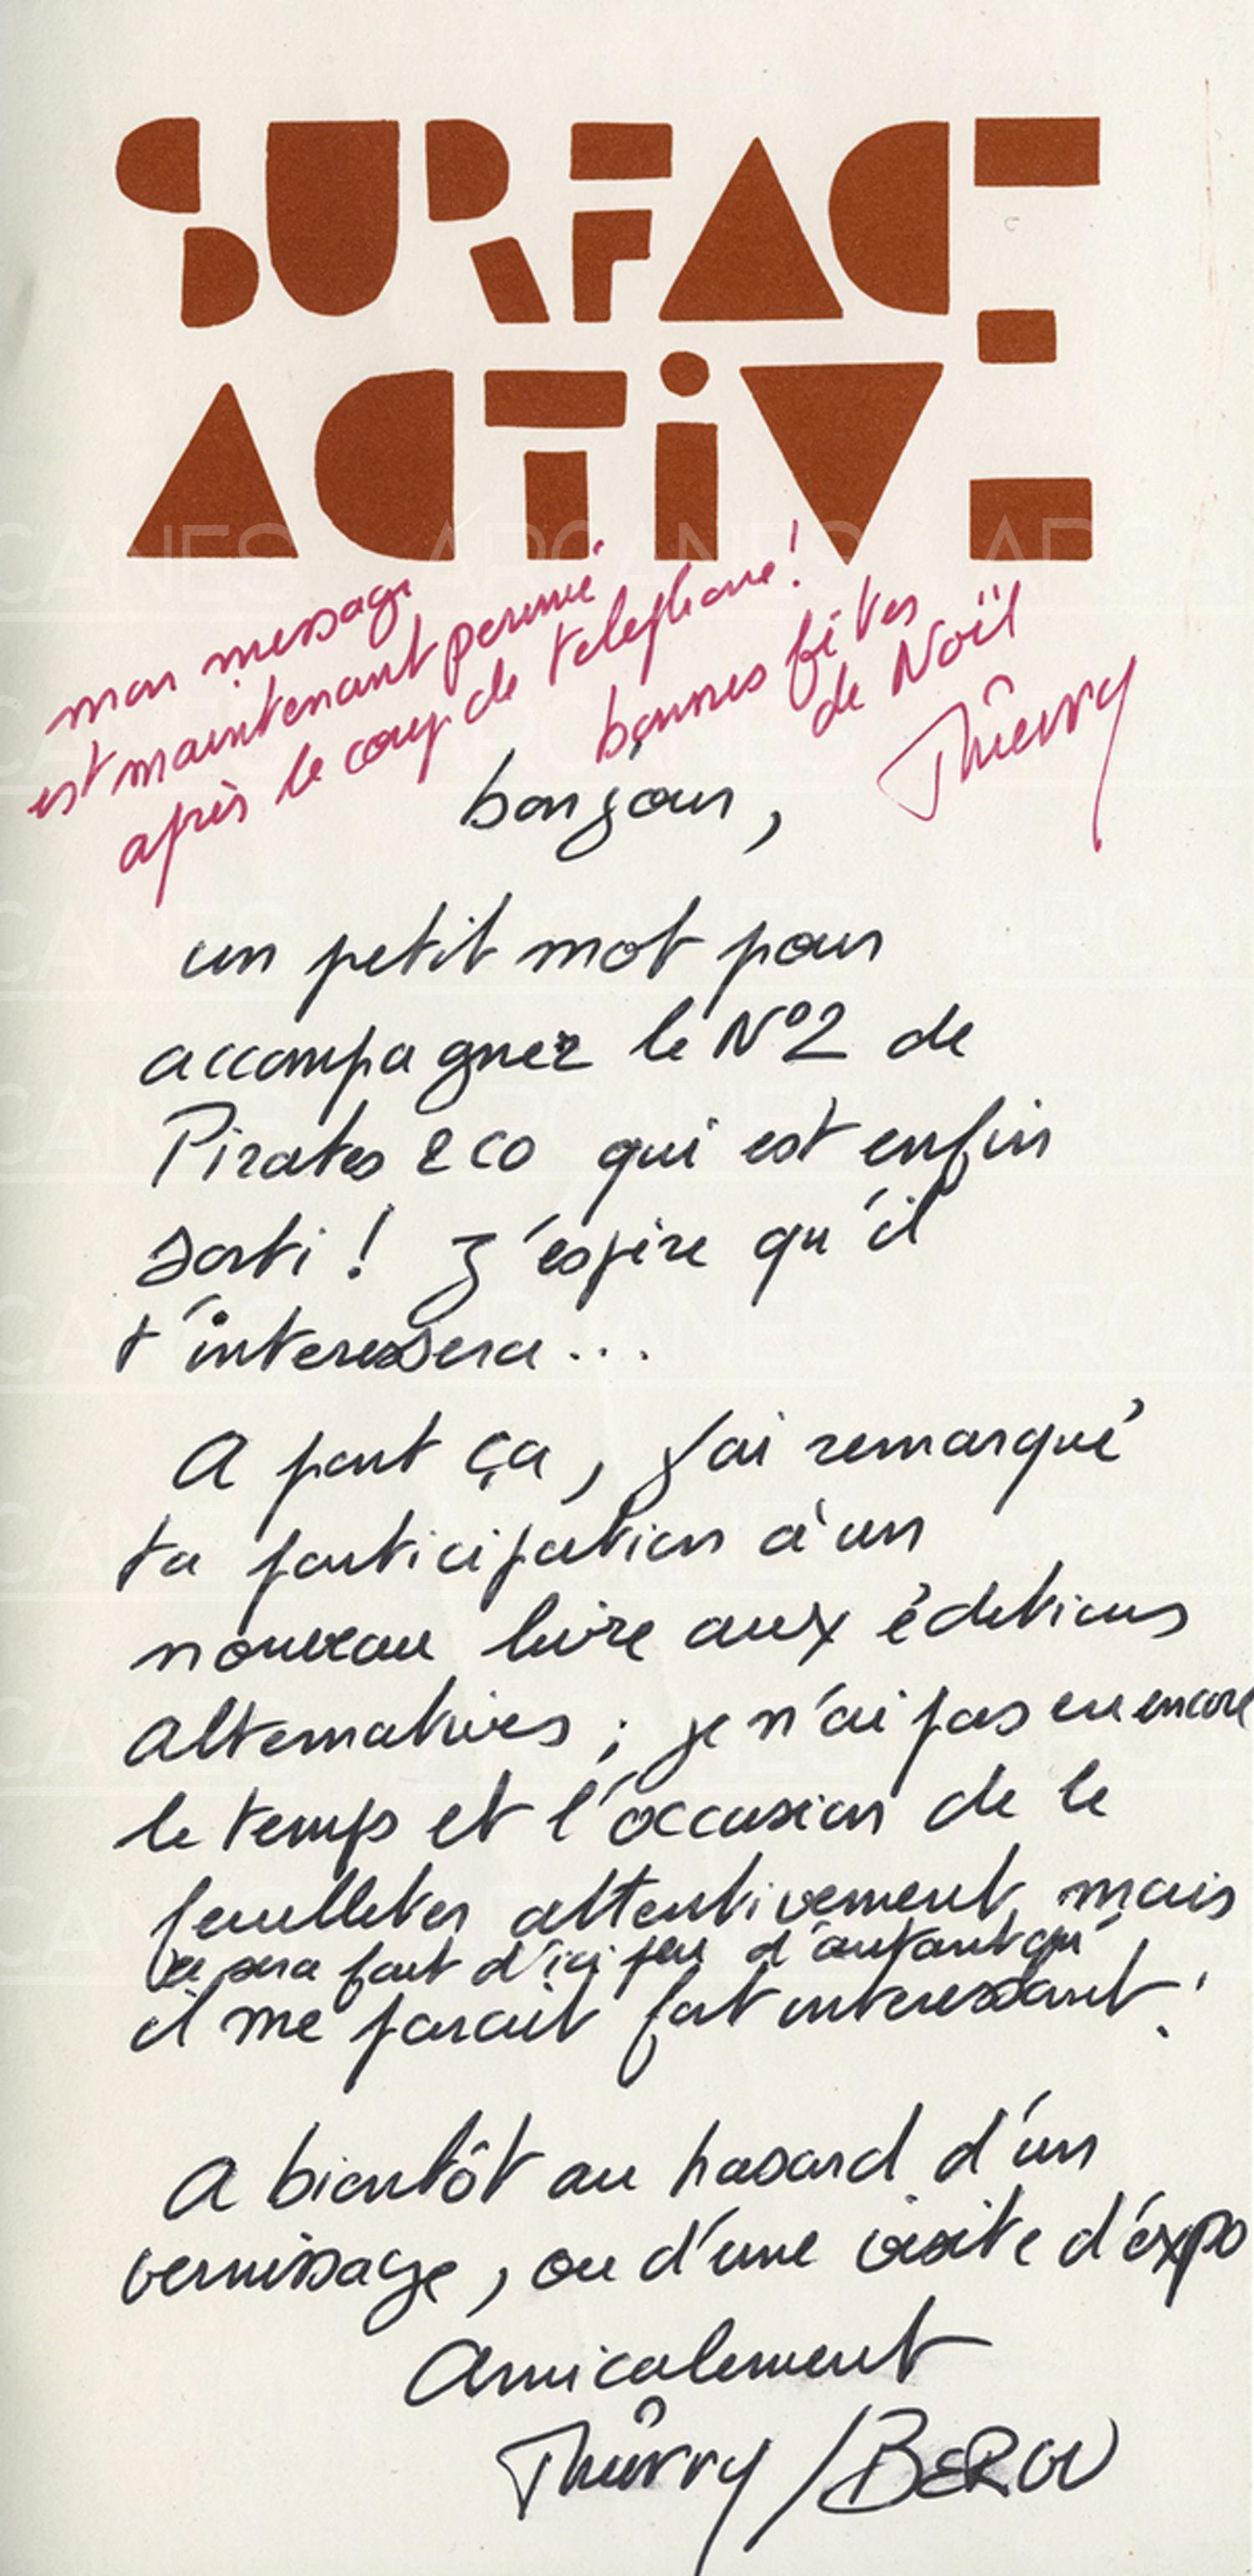 SURFACE
ACTIVE
mon message
est maintenant perimé
après le coup de telephone!
bonnes fêtes
de Noël
Thierry
bonjour,
un petit mot pour
accompagner le N°2 de
Pirates & co qui est enfin
sorti ! J'espère qu'il
t'interessera...
A part ça, j'ai remarqué
ta participation à un
nouveau livre aux éditions
Alternatives ; je n'ai pas eu encore
le temps et l'occasion de le
feuilleter attentivement, mais
ce sera fait d'ici peu d'autant qu'
il me parait fort interessant !
A bientôt au hasard d'un
vernissage, ou d'une visite d'expo
Amicalement
Thierry /